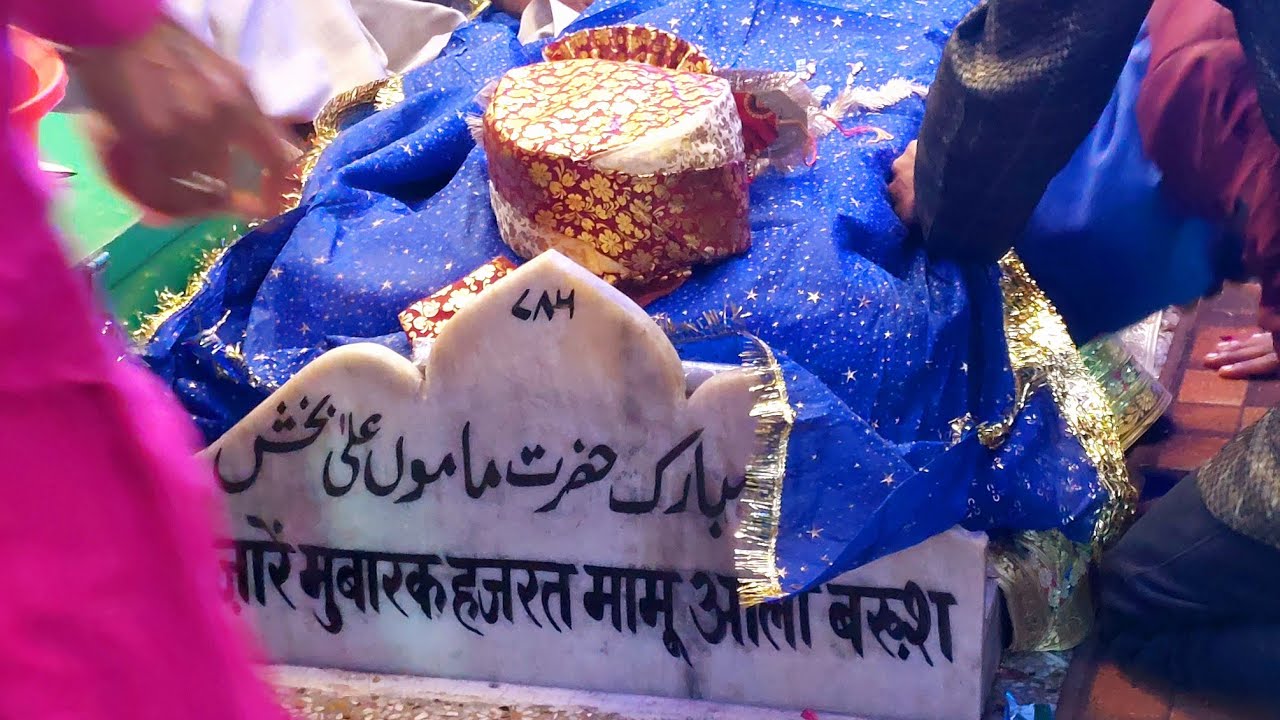 ۷۸۶
مبارک حضرت ماموں علی بخش
ज़ारें मुबारक हजरत मामू आली बख़्श